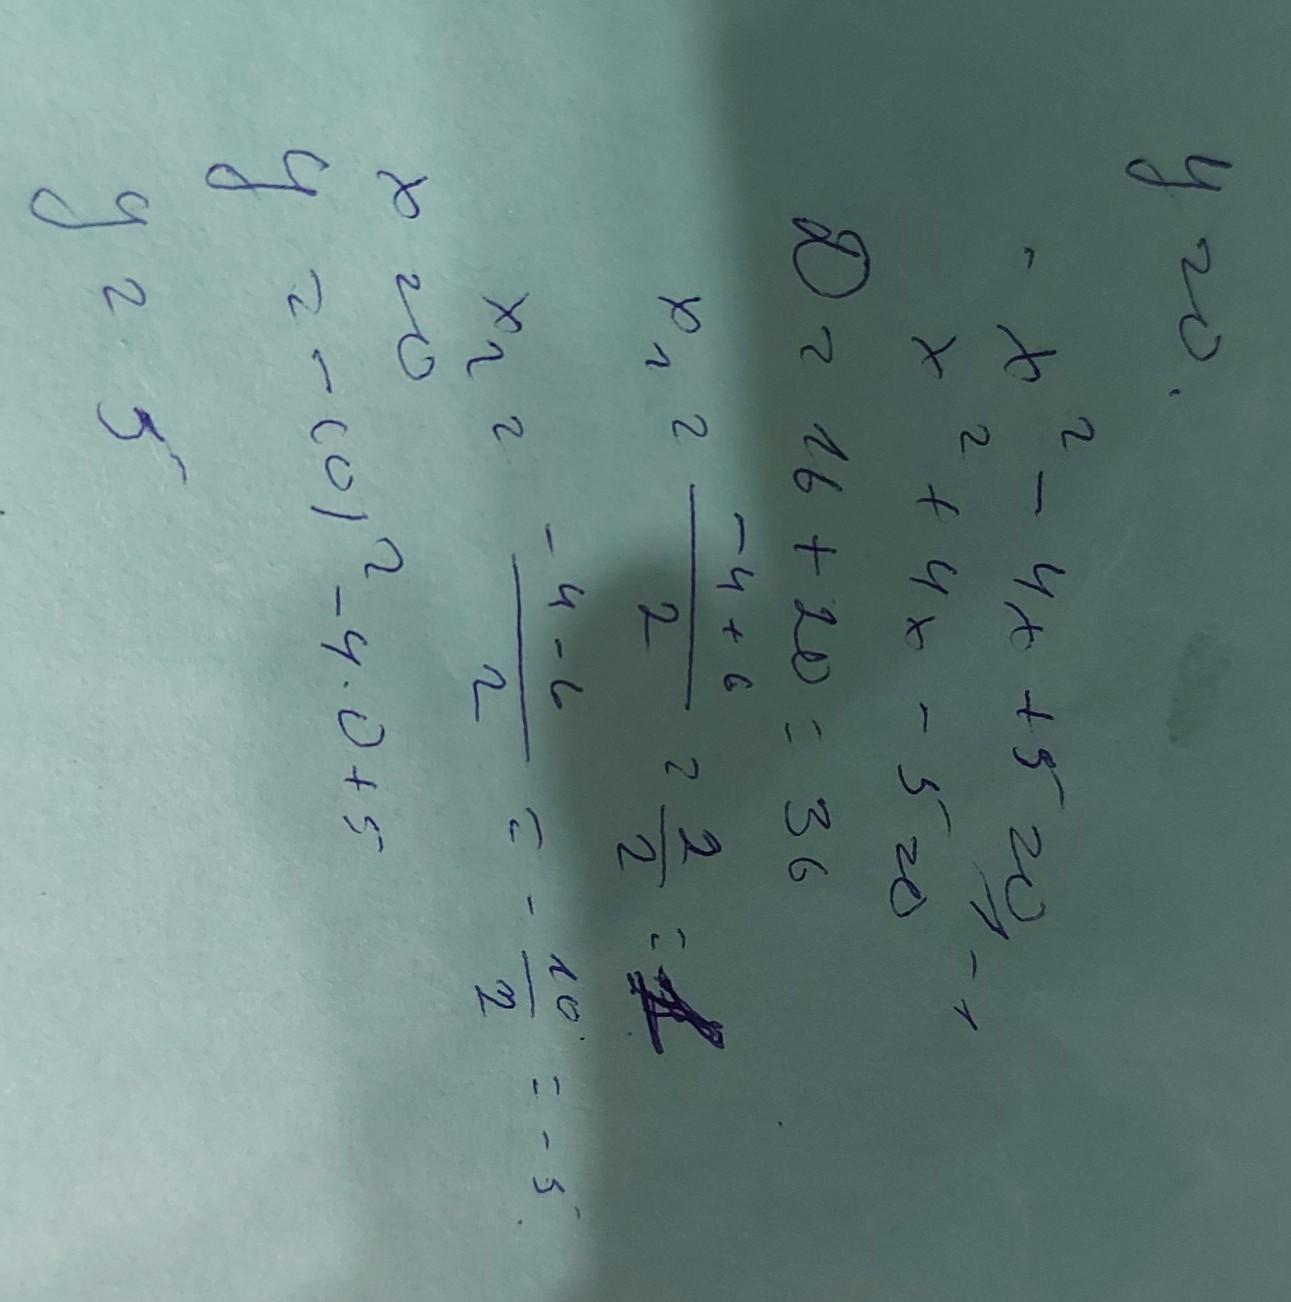 y = 0.
- x² - 4x + 5 = 0 | · - 1
x² + 4x - 5 = 0
D = 16 + 20 = 36
x₁ = (-4+6)/2 = 2/2 = 1
x₂ = (-4-6)/2 = -10/2 = -5.
x = 0
y = -(0)² - 4·0 + 5
y = 5